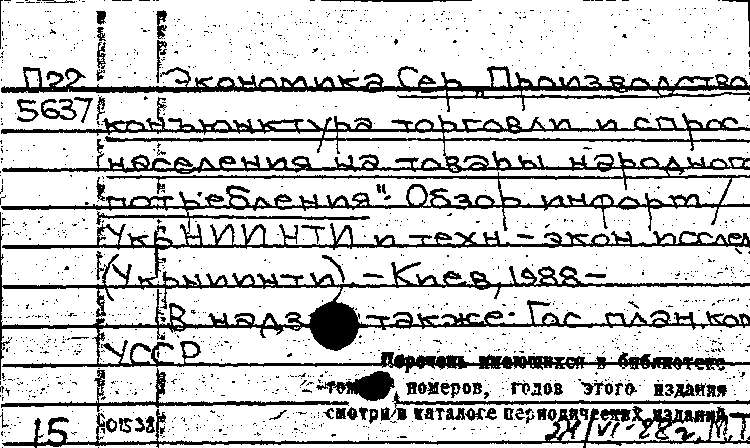 П22 Экономика Сер „Производство
5637 конъюнктура торговли и спрос
населения на товары народног
потребления": Обзор информ /
УкрНИИНТИ и техн.-экон. исслед
(УкрНИИНТИ). - Киев, 1988-
В надз также: Гос. план. ком
УССР
Перечень имеющихся в библиотеке
томов, номеров, годов этого издания
смотри в каталоге периодических изданий
15 01538 24/VI-88г. М.Т